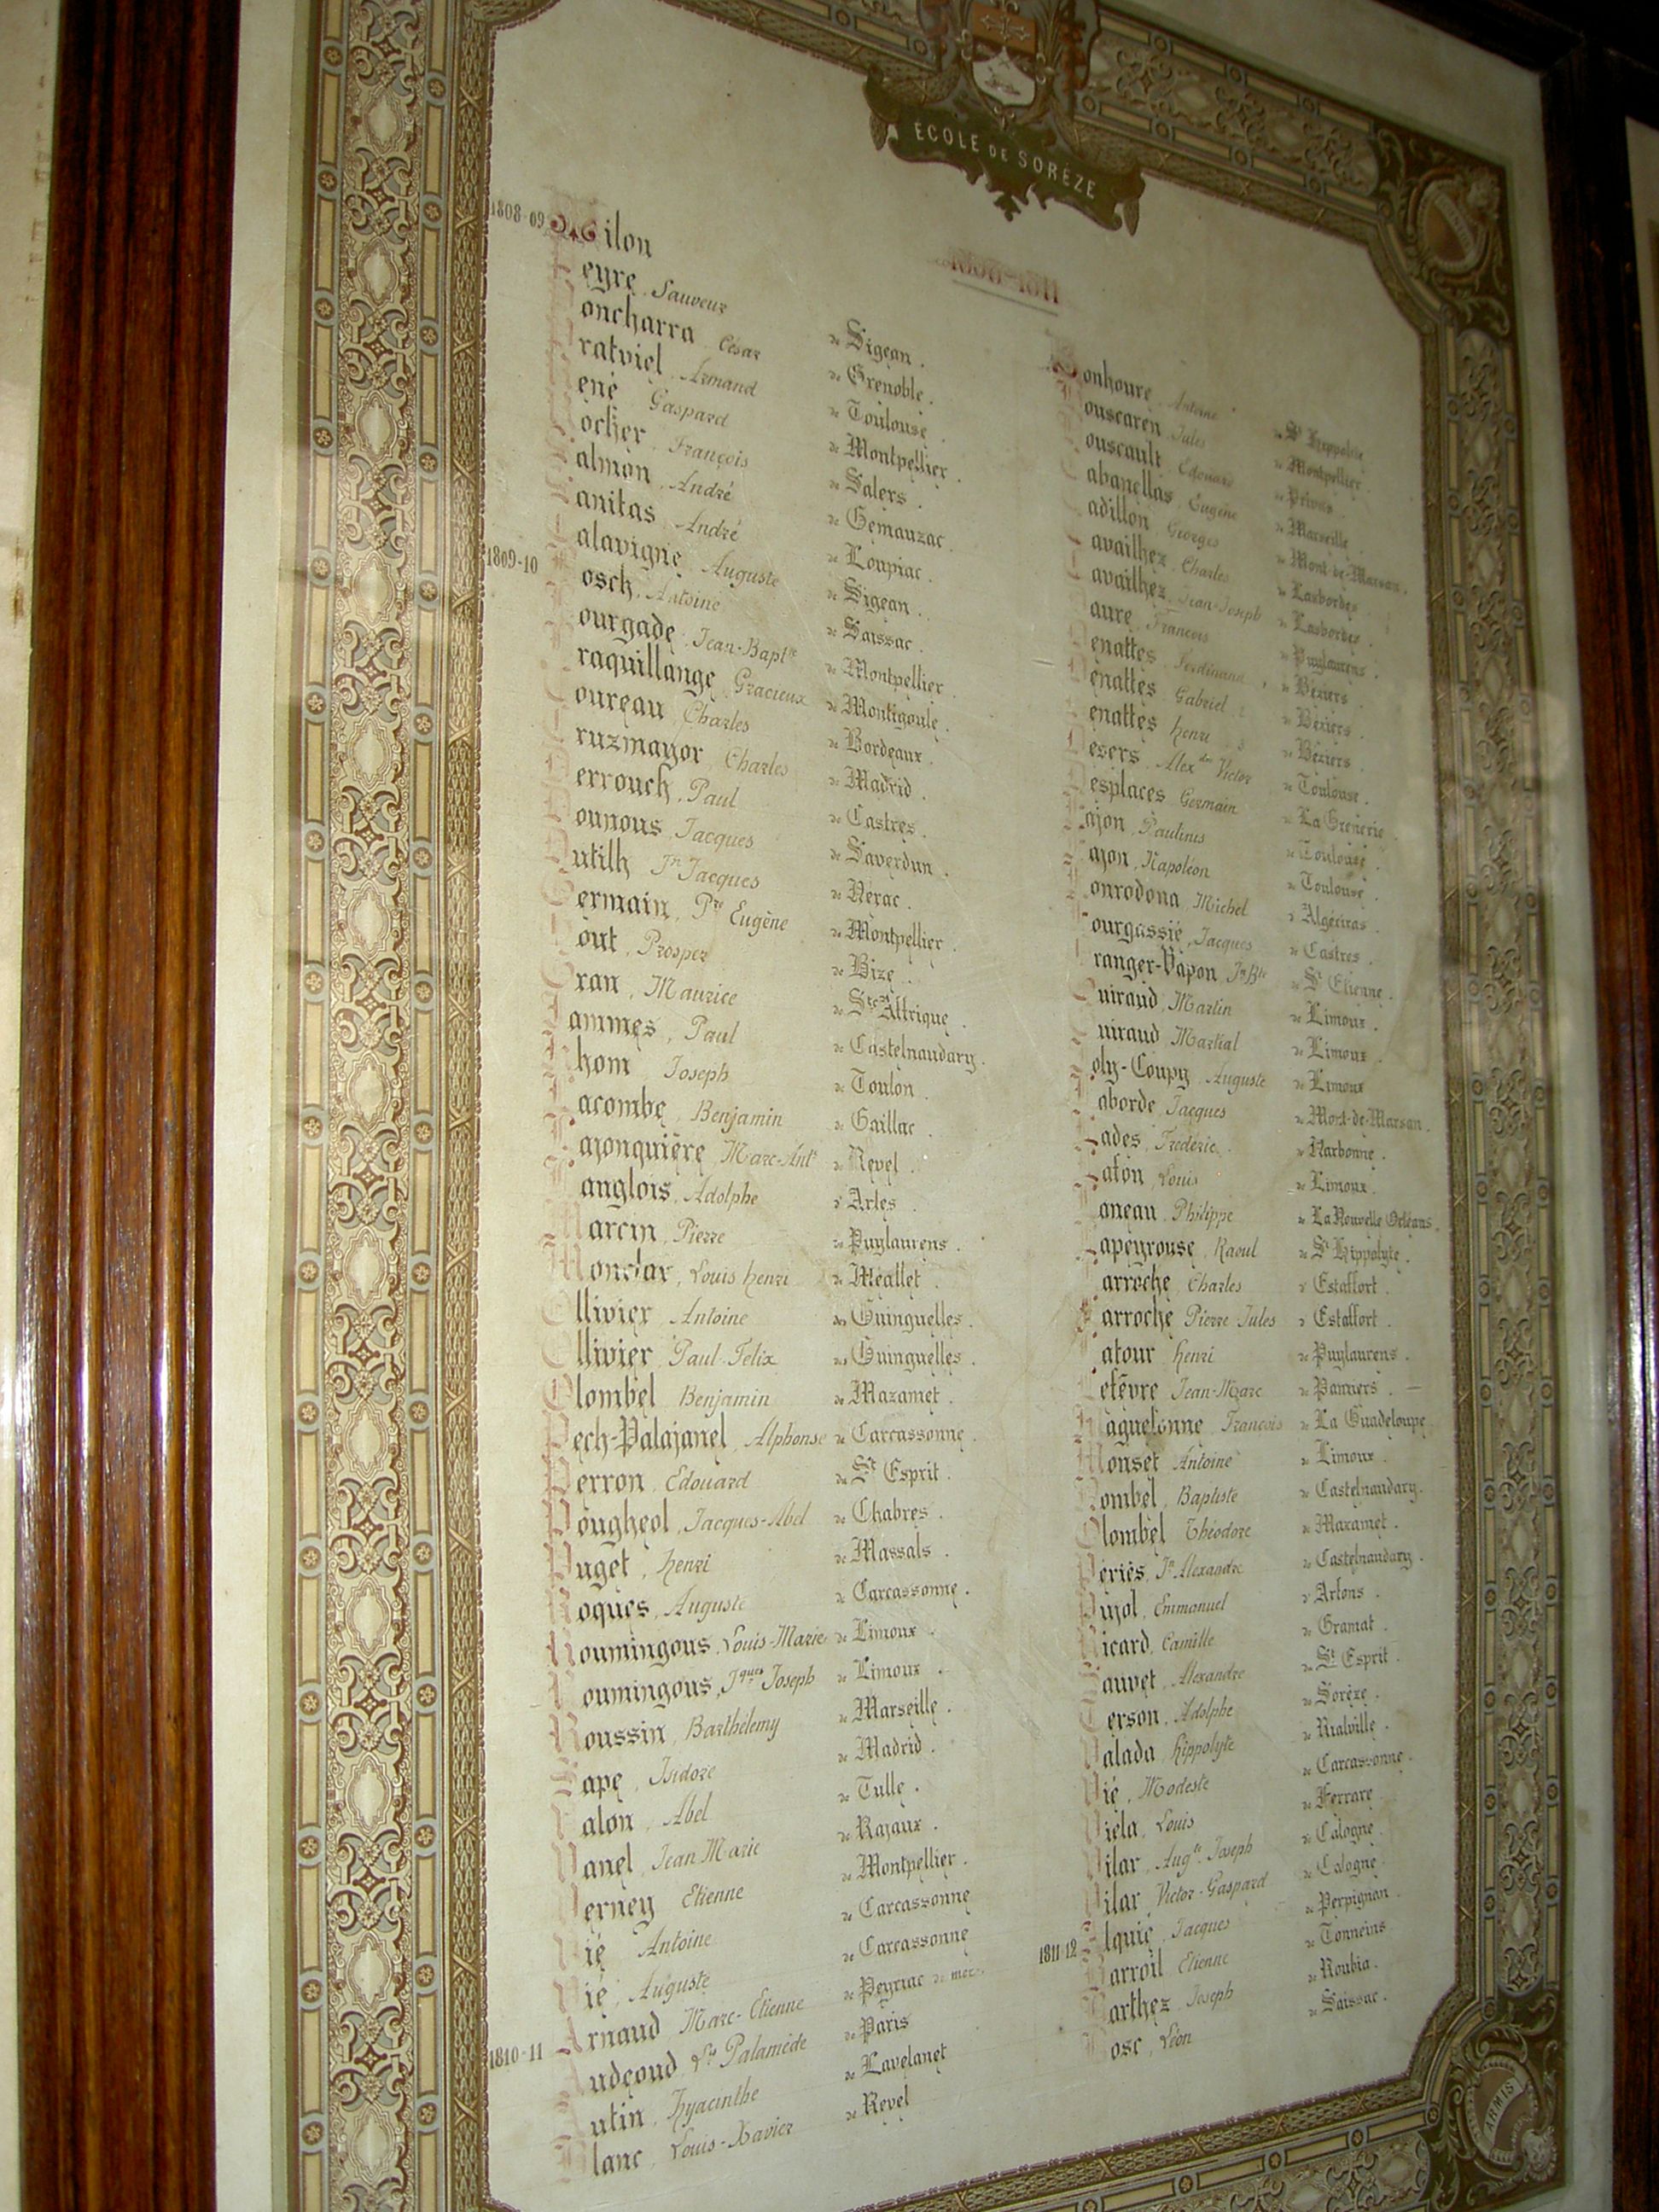 ÉCOLE DE SORÈZE
1808-1811
1808-09 Milon
Peyre, Sauveur de Sigean.
Poncharra, César de Grenoble.
Pratviel, Armand de Toulouse.
René, Gaspard de Montpellier.
Rocher, François de Salers.
Salmon, André de Gemauzac.
Sanitas, André de Loupiac.
Talavigne, Auguste de Sigean.
1809-10 Bosch, Antoine de Saissac.
Bourgade, Jean-Bapt.te de Montpellier.
Braquillange, Gracieux de Montigoule.
Coureau, Charles de Bordeaux.
Cruzmayor, Charles de Madrid.
Derrouch, Paul de Castres.
Dounous, Jacques de Saverdun.
Dutilh, Jn Jacques de Nérac.
Germain, Pre Eugène de Montpellier.
Gout, Prosper de Bize.
Gran, Maurice de St Affrique.
Jammes, Paul de Castelnaudary.
Khom, Joseph de Toulon.
Lacombe, Benjamin de Gaillac.
Lajonquière, Marc-Ant. de Revel.
Langlois, Adolphe d'Arles.
Marcin, Pierre de Puylaurens.
Monclar, Louis Henri de Méallet.
Ollivier, Antoine des Guinguelles.
Ollivier, Paul-Felix des Guinguelles.
Olombel, Benjamin de Mazamet.
Pech-Palajanel, Alphonse de Carcassonne.
Perron, Edouard du St Esprit.
Pougheol, Jacques-Abel de Chabres.
Puget, Henri de Massals.
Roques, Auguste de Carcassonne.
Roumingous, Louis-Marie de Limoux.
Roumingous, Jques Joseph de Limoux.
Roussin, Barthélemy de Marseille.
Sape, Isidore de Madrid.
Valon, Abel de Tulle.
Vanel, Jean Marie de Rajaux.
Verney, Etienne de Montpellier.
Vié, Antoine de Carcassonne
Vié, Auguste de Carcassonne
1810-11 Arnaud, Marc-Etienne de Peyriac de mer.
Audeoud, Ls Palamède de Paris
Autin, Hyacinthe de Lavelanet
Blanc, Louis-Xavier de Revel
Bonhoure, Antoine de St Hippolyte
Bouscaren, Jules de Montpellier.
Bouscault, Edouard de Privas.
Cabanellas, Eugène de Marseille
Cadillon, Georges de Mont-de-Marsan.
Cavailhez, Charles de Lasbordes.
Cavailhez, Jean-Joseph de Lasbordes.
Daure, François de Puylaurens.
Denattes, Ferdinand, de Béziers.
Denattes, Gabriel de Béziers.
Denattes, Henri de Béziers.
Desers, Alex.dre Victor de Toulouse.
Desplaces, Germain de La Grenerie.
Fajon, Paulinus de Toulouse.
Fajon, Napoléon de Toulouse.
Fonrodona, Michel d'Algéciras.
Fourgassié, Jacques de Castres.
Granger-Vapon, Jn Bte de St Etienne.
Guiraud, Martin de Limoux.
Guiraud, Martial de Limoux.
Joly-Coupy, Auguste de Limoux
Laborde, Jacques de Mont-de-Marsan.
Lades, Frédéric. de Narbonne.
Lafon, Louis de Limoux.
Laneau, Philippe de La Nouvelle Orléans.
Lapeyrouse, Raoul de St Hippolyte.
Larroche, Charles d'Estaffort.
Larroche, Pierre Jules d'Estaffort.
Latour, Henri de Puylaurens.
Lefèvre, Jean-Marc de Pamiers.
Maguelonne, François de La Guadeloupe.
Mouset, Antoine de Limoux.
Nombel, Baptiste de Castelnaudary.
Olombel, Théodore de Mazamet.
Périès, Jn Alexandre de Castelnaudary.
Pujol, Emmanuel d'Artons.
Ricard, Camille de Gramat.
Sauvet, Alexandre du St Esprit.
Terson, Adolphe de Sorèze.
Valada, Hippolyte de Rialville.
Vié, Modeste de Carcassonne.
Viela, Louis de Ferrare.
Vilar, Aug.te Joseph de Calogne.
Vilar, Victor-Gaspard de Calogne
1811-12 Alquié, Jacques de Perpignan.
Barroil, Etienne de Tonneins
Barthez, Joseph de Roubia.
Bosc, Léon de Saissac.
ARMIS